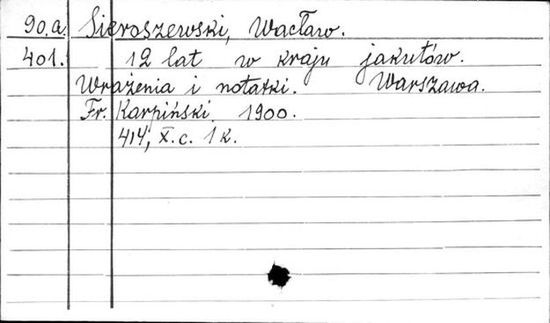 90.a. Sieroszewski, Wacław.
401. 12 lat w kraju jakutów.
Wrażenia i notatki. Warszawa.
Fr. Karpiński. 1900.
414, X.c. 1 k.